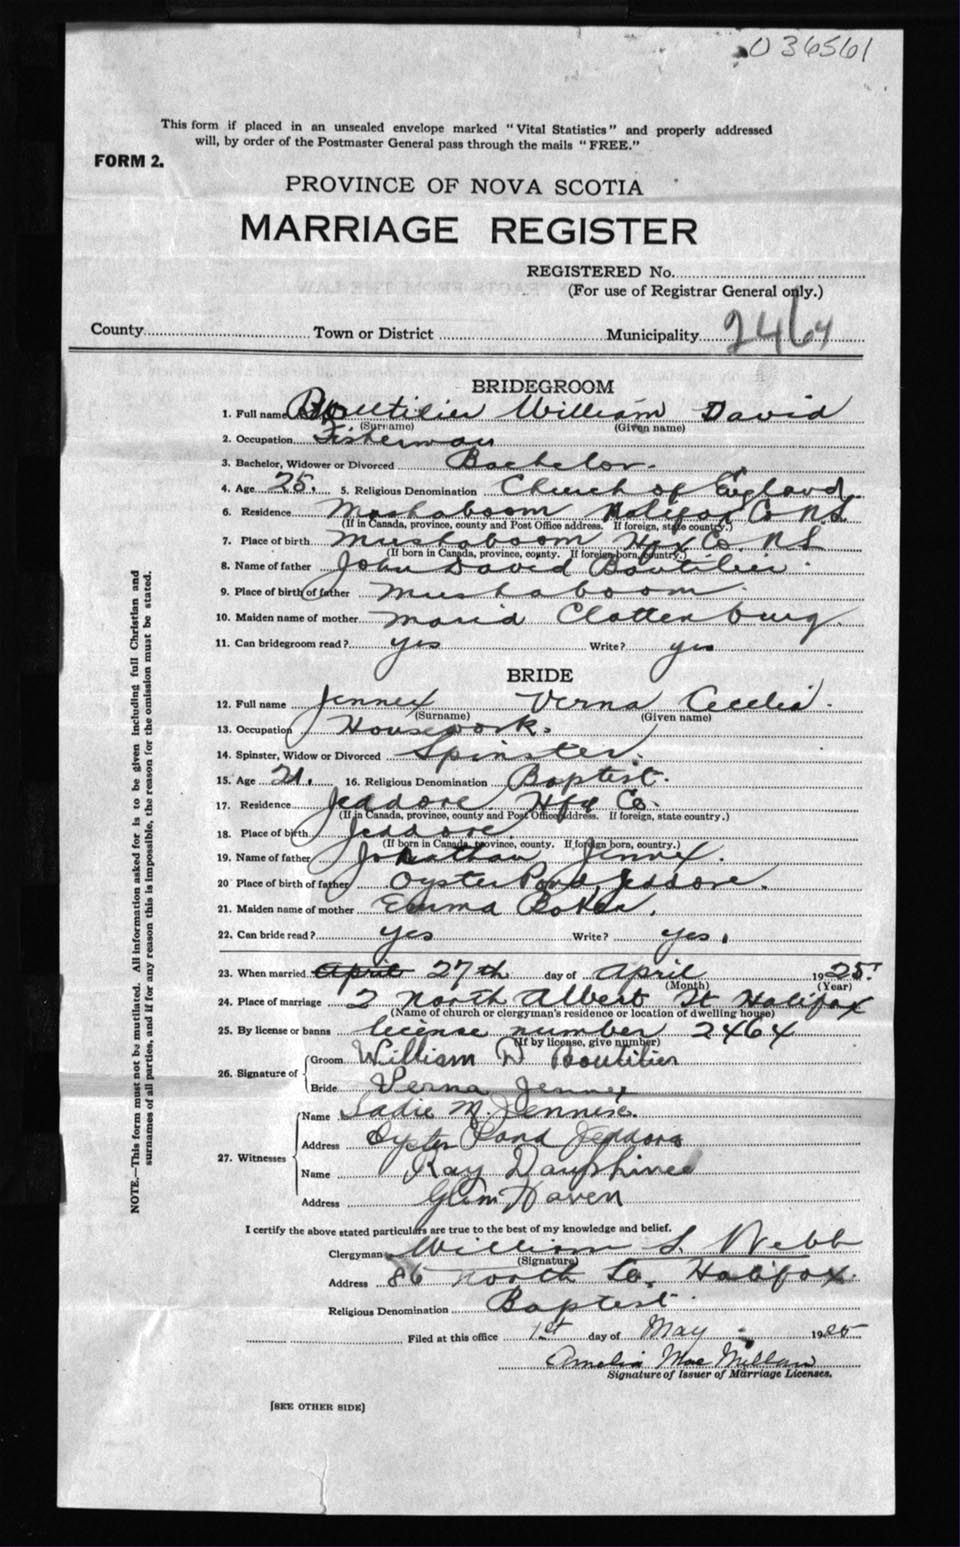 036561
This form if placed in an unsealed envelope marked "Vital Statistics" and properly addressed
will, by order of the Postmaster General pass through the mails "FREE."
FORM 2.
PROVINCE OF NOVA SCOTIA
MARRIAGE REGISTER
REGISTERED No.
(For use of Registrar General only.)
County Town or District Municipality 2464
BRIDEGROOM
1. Full name Boutilier William David
(Surname) (Given name)
2. Occupation Fisherman
3. Bachelor, Widower or Divorced Bachelor.
4. Age 25. 5. Religious Denomination Church of England
6. Residence Mushaboom Halifax Co N.S
(If in Canada, province, county and Post Office address. If foreign, state country.)
7. Place of birth Mushaboom Hfx Co. N S
(If born in Canada, province, county. If foreign born, country.)
8. Name of father John David Boutilier
9. Place of birth of father Mushaboom
10. Maiden name of mother Maria Clattenburg
11. Can bridegroom read? yes Write? yes
BRIDE
12. Full name Jennex Verna Cecelia.
(Surname) (Given name)
13. Occupation Housework.
14. Spinster, Widow or Divorced Spinster.
15. Age 21. 16. Religious Denomination Baptist.
17. Residence Jeddore Hfx Co.
(If in Canada, province, county and Post Office address. If foreign, state country.)
18. Place of birth Jeddore.
(If born in Canada, province, county. If foreign born, country.)
19. Name of father Jonathan Jennex.
20 Place of birth of father Oyster Pond, Jeddore.
21. Maiden name of mother Emma Baker.
22. Can bride read? yes Write? yes.
23. When married April 27th day of April 1925.
(Month) (Year)
24. Place of marriage 2 North Albert St Halifax
(Name of church or clergyman's residence or location of dwelling house)
25. By license or banns license number 2464
(If by license, give number)
26. Signature of Groom William D Boutilier
Bride Verna Jennex
27. Witnesses Name Sadie M. Jennex.
Address Oyster Pond Jeddore
Name Ray Dauphinee
Address Glen Haven
I certify the above stated particulars are true to the best of my knowledge and belief.
Clergyman William S. Webb
(Signature)
Address 86 North St. Halifax.
Religious Denomination Baptist.
Filed at this office 1st day of May 1925
Amelia MacMillan
Signature of Issuer of Marriage Licenses.
[SEE OTHER SIDE]
NOTE.—This form must not be mutilated. All information asked for is to be given including full Christian and
surnames of all parties, and if for any reason this is impossible, the reason for the omission must be stated.